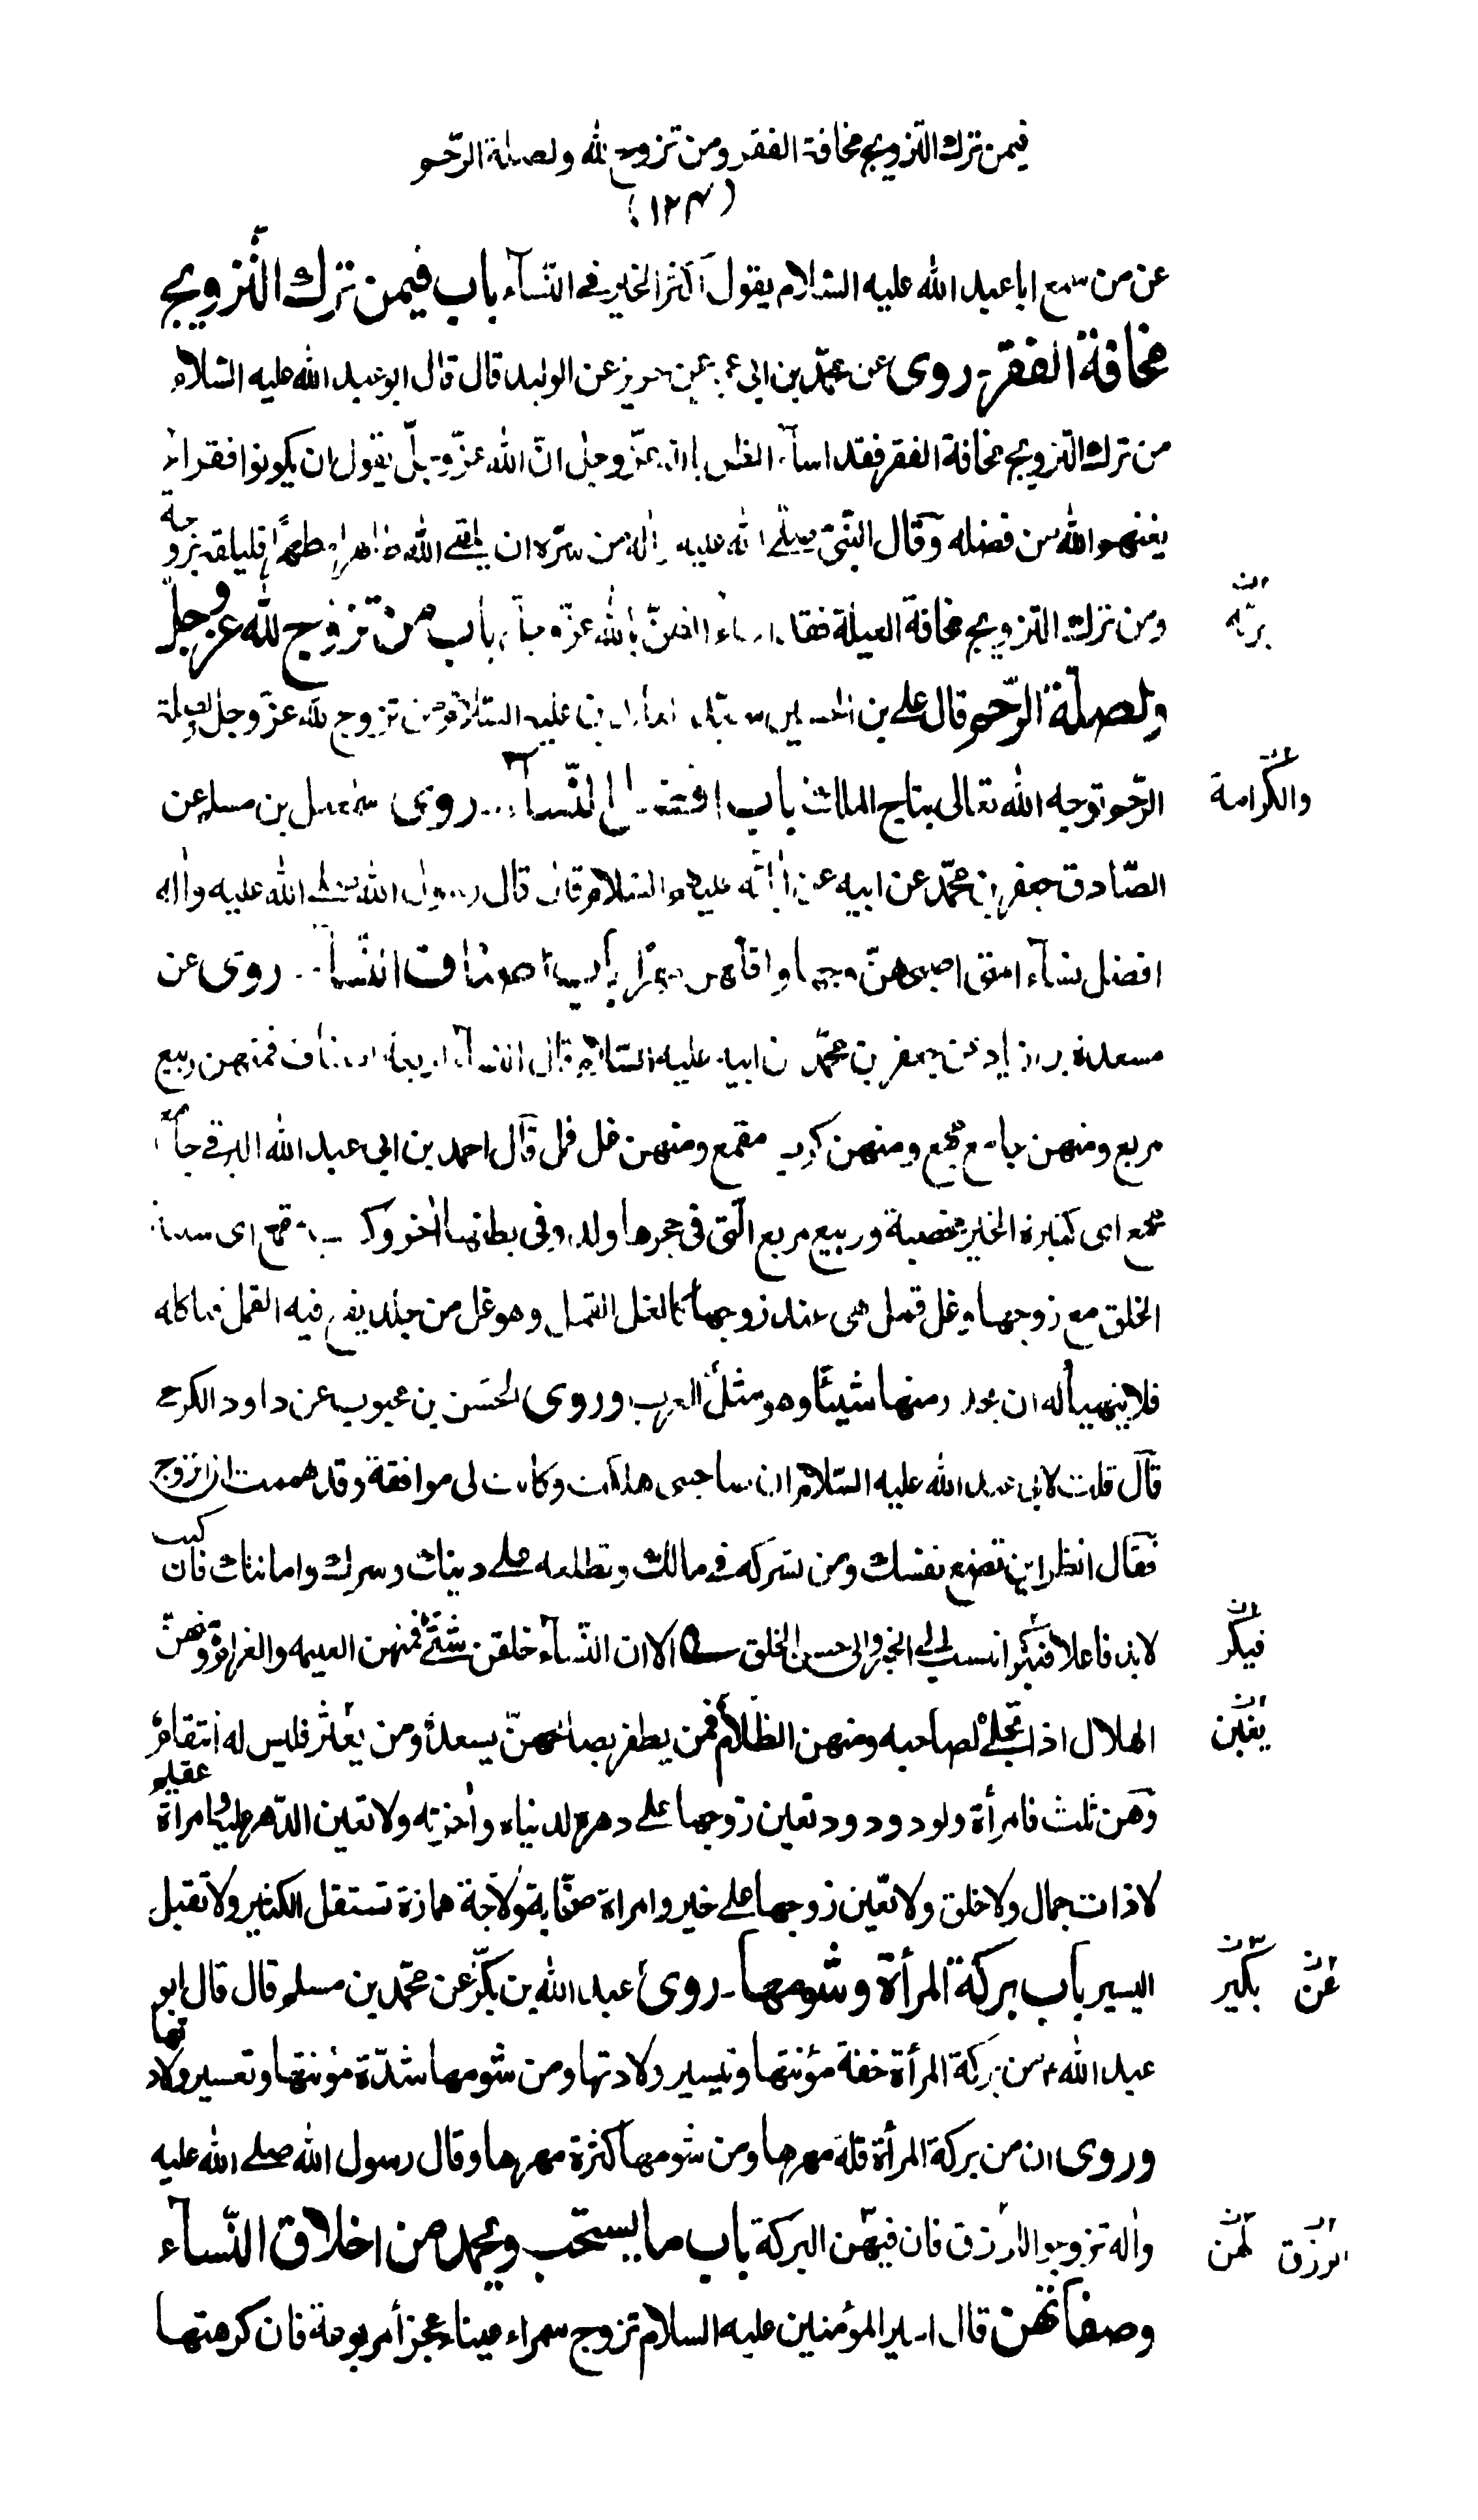 فيمن ترك التزويج مخافة الفقر ومن تزوج لله ولصلة الرّحم
(١٢٤)
عن من سمع ابا عبد الله عليه السّلام يقول اكثر الخير فى النّسآء باب فيمن ترك التّزويج
مخافة الفقر روى عن محمّد بن ابى عن حريز عن الوليد قال قال ابو عبد الله عليه السّلام
من ترك التّزويج مخافة الفقر فقد اسآء الظن بالله عزّ وجل انّ الله عزّ وجلّ يقول ان يكونوا فقراء
يغنهم الله من فضله وقال النّبى صلى الله عليه واله من سرّه ان يلقى الله طاهرا مطهرًا فليلقه بزوجة
ومن ترك التزويج مخافة العيلة فقد اساء الظنّ بالله عزّ وجل باب من تزوج لله عزوجل
ولصلة الرّحم قال على بن الحسين سيد العابدين عليه السّلام من تزوج لله عزّ وجل ولصلة
الرّحم توجه الله تعالى بتاج الملك باب افضل النّسآء روى اسمعيل بن مسلم عن
الصّادق جعفر بن محمّد عن ابيه عن ابائه عليهم السّلام قال قال رسول الله صلى الله عليه واله
افضل نسآء امتى اصبحهنّ وجها واقلهن مهرًا باب اصناف النّسآء روى عن
مسعدة بن زياد عن جعفر بن محمّد عن ابيه عليه السّلام قال النسآء اربعة اصناف فمنهن ربيع
مربع ومنهن جامع مجمع ومنهن كرب مقمع ومنهن غل قمل قال احمد بن ابى عبد الله البرقى جامع
مجمع اى كثيرة الخير مخصبة وربيع مربع الّتى فى حجرها ولد وفى بطنها اخر وكرب مقمع اى سيئة
الخلق مع زوجها وغل قمل هى عند زوجها كالغل القمل وهو غل من جلد يقع فيه القمل فياكله
فلا يتهيأ له ان يحذر منها شيئًا وهو مثل للعرب وروى الحسَن بن محبوب عن داود الكرخى
قال قلت لابى عبد الله عليه السّلام ان صاحبتى هلكت وكانت لى موافقة وقد هممت ان اتزوج
فقال انظر اين تضع نفسك ومن تشركه فى مالك وتطلعه على دينك وسرك وامانتك فان كنت
لابد فاعلا فبكرا تنسب الى الخير والى حسن الخلق الا ان النّسآء خلقن شتّى فمنهن الغنيمة والغرامة ومنهن
الهلال اذا تجلى لصاحبه ومنهن الظّلام فمن يظفر بصالحهنّ يسعد ومن يعثر فليس له انتقام
وهن ثلث فامرأة ولود ودود تعين زوجها على دهره لدنياه واخرته ولا تعين الدّهر عليه وامراة عقيم
لا ذات جمال ولا خلق ولا تعين زوجها على خير وامراة صخّابة ولاجة همازة تستقل الكثير ولا تقبل
اليسير باب بركة المرأة وشومها روى عبد الله بن بكر عن محمّد بن مسلم قال قال ابو
عبد الله ع من بركة المرأة خفة مؤنتها وتيسير ولادتها ومن شومها شدّة مؤنتها وتعسير ولادتها
وروى ان من بركة المرأة قلة مهرها ومن شومها كثرة مهرها وقال رسول الله صلى الله عليه
واله تزوجوا الزرق فان فيهّن البركة باب ما يستحب ويحمد من اخلاق النّسآء
وصفاتهن قال امير المؤمنين عليه السلام تزوج سمراء عيناء عجزاء مربوعة فان كرهتها
ن
بريّة
والكرامة
ن
فيكر
ن
يغبن
ن
عن
ن
بكير
ن
الرزق
ن
لهن